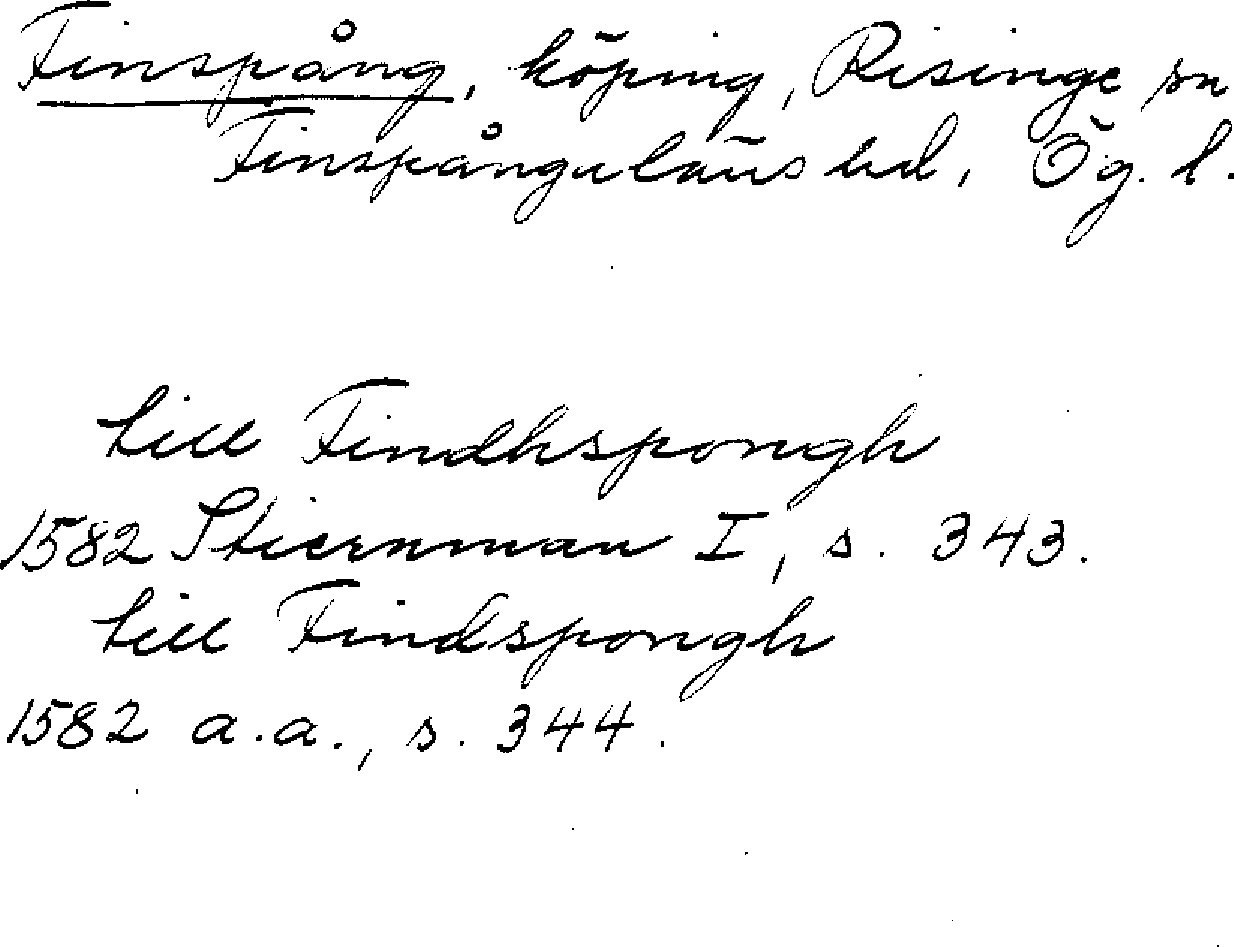 Finspång, köping, Risinge sn
Finspångaläns hd, Ög. l.
till Findhspongh
1582 Stiernman I, s. 343.
till Findspongh
1582 a.a., s. 344.